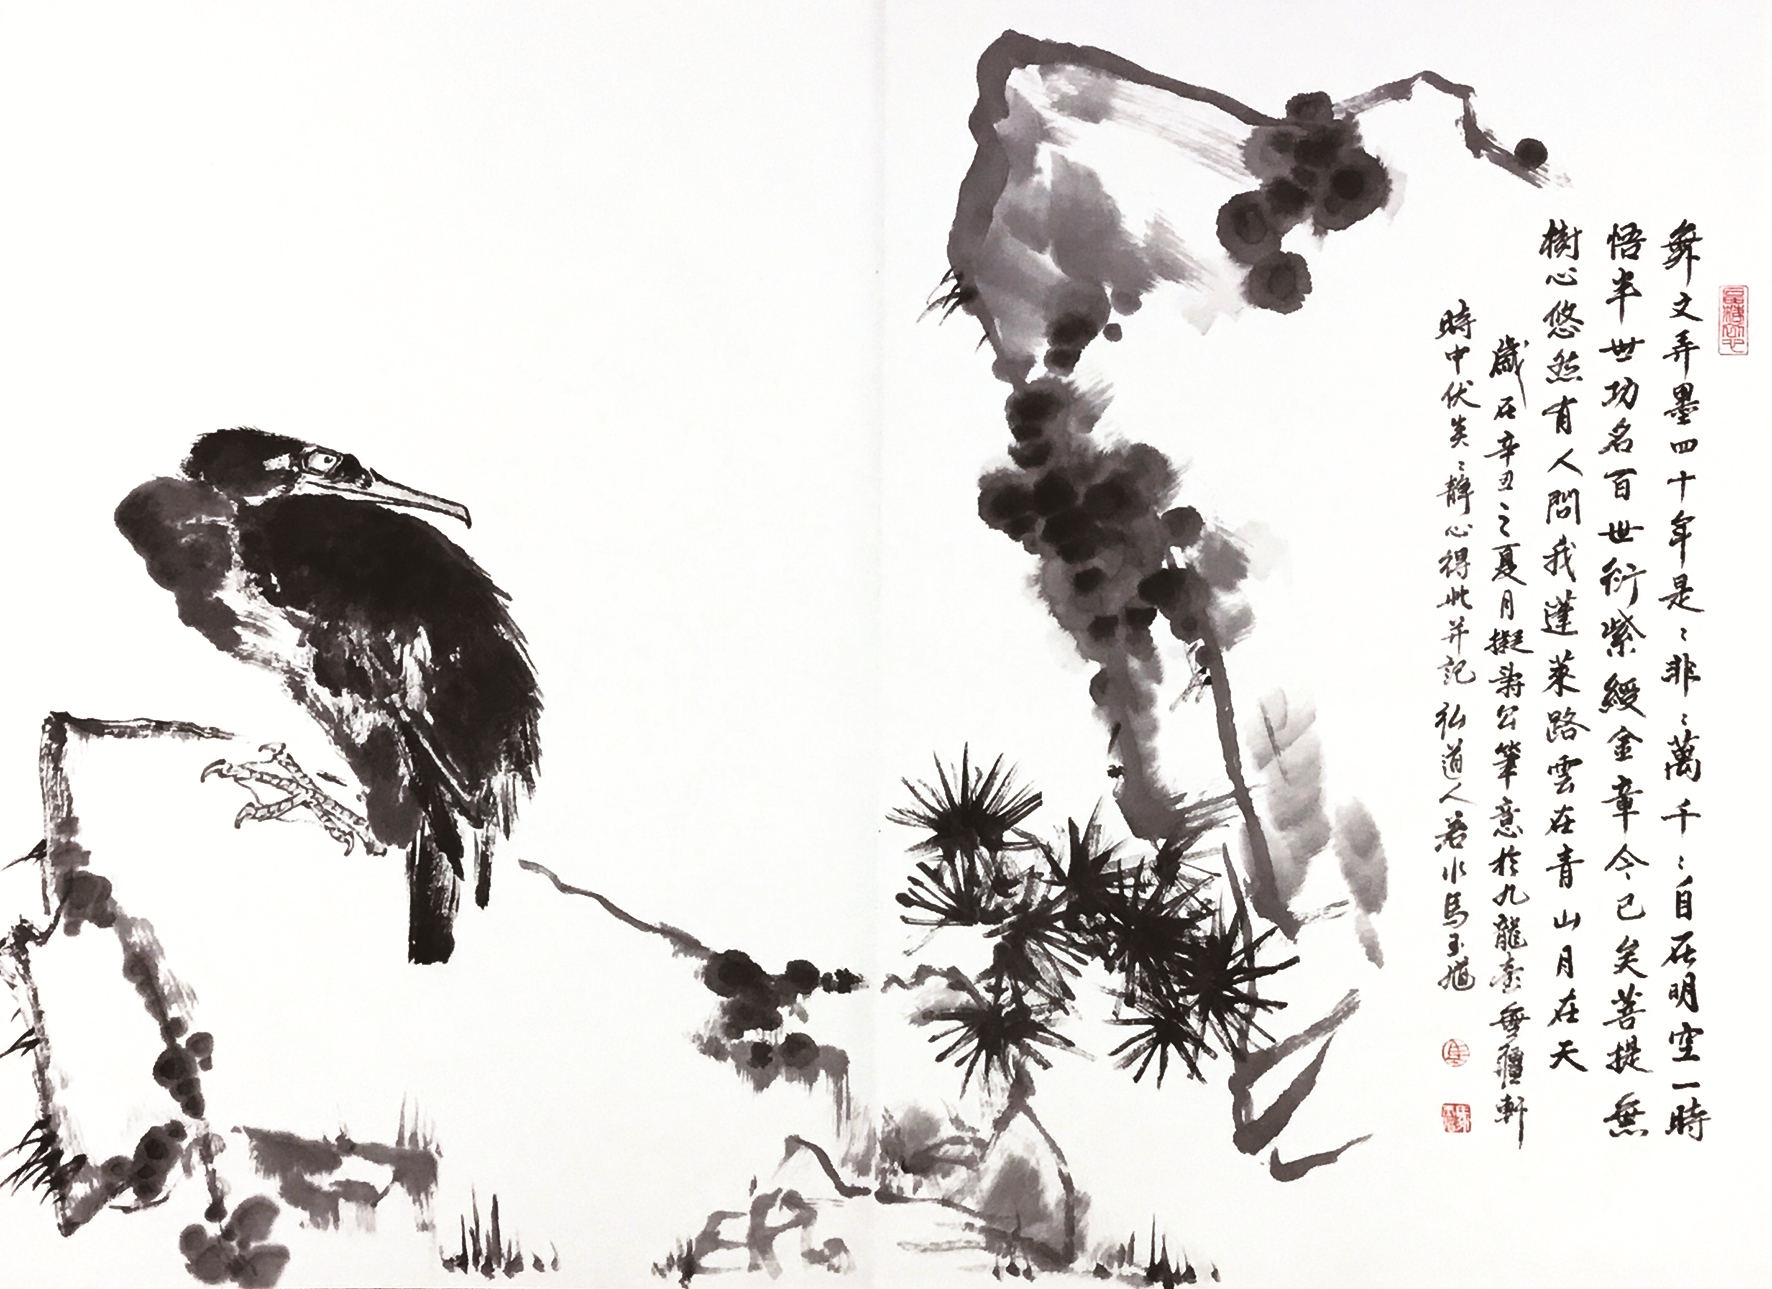 舞文弄墨四十年是〻非〻萬千〻自在明空一時
悟半世功名百世衍紫綬金章今已矣菩提無
樹心悠然有人問我蓬萊路雲在青山月在天
歲在辛丑之夏月擬壽公筆意於九龍疆軒
時中伏炎〻靜心得此并記 弘道人若水馬玉